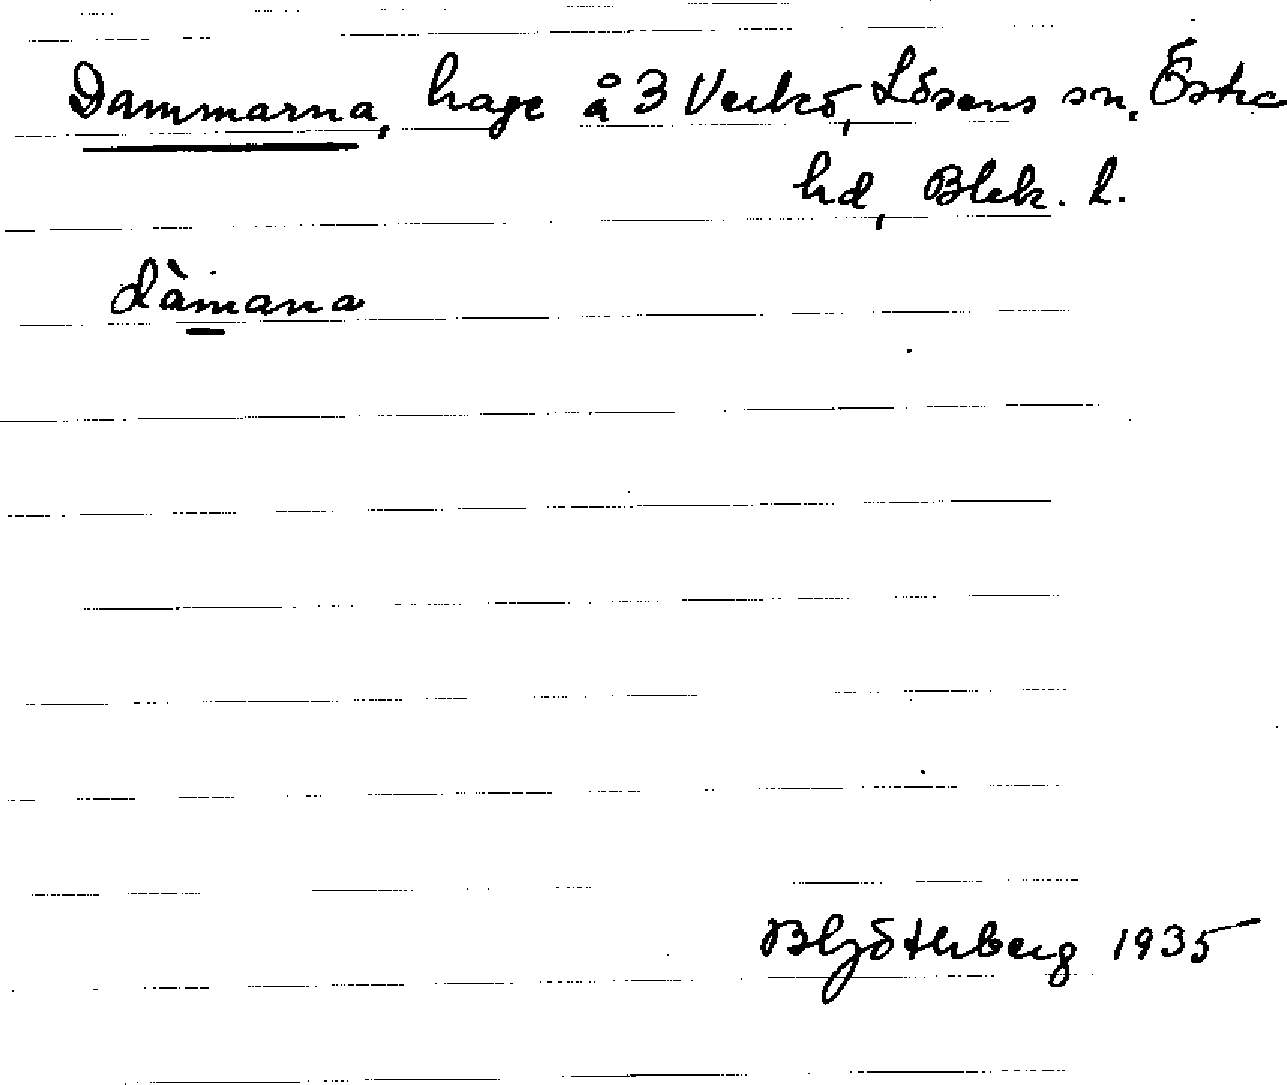 Dammarna, hage å 3 Verkö, Lösens sn, Östra
hd, Blek. l.
dàmana
B Hjötherberg 1935